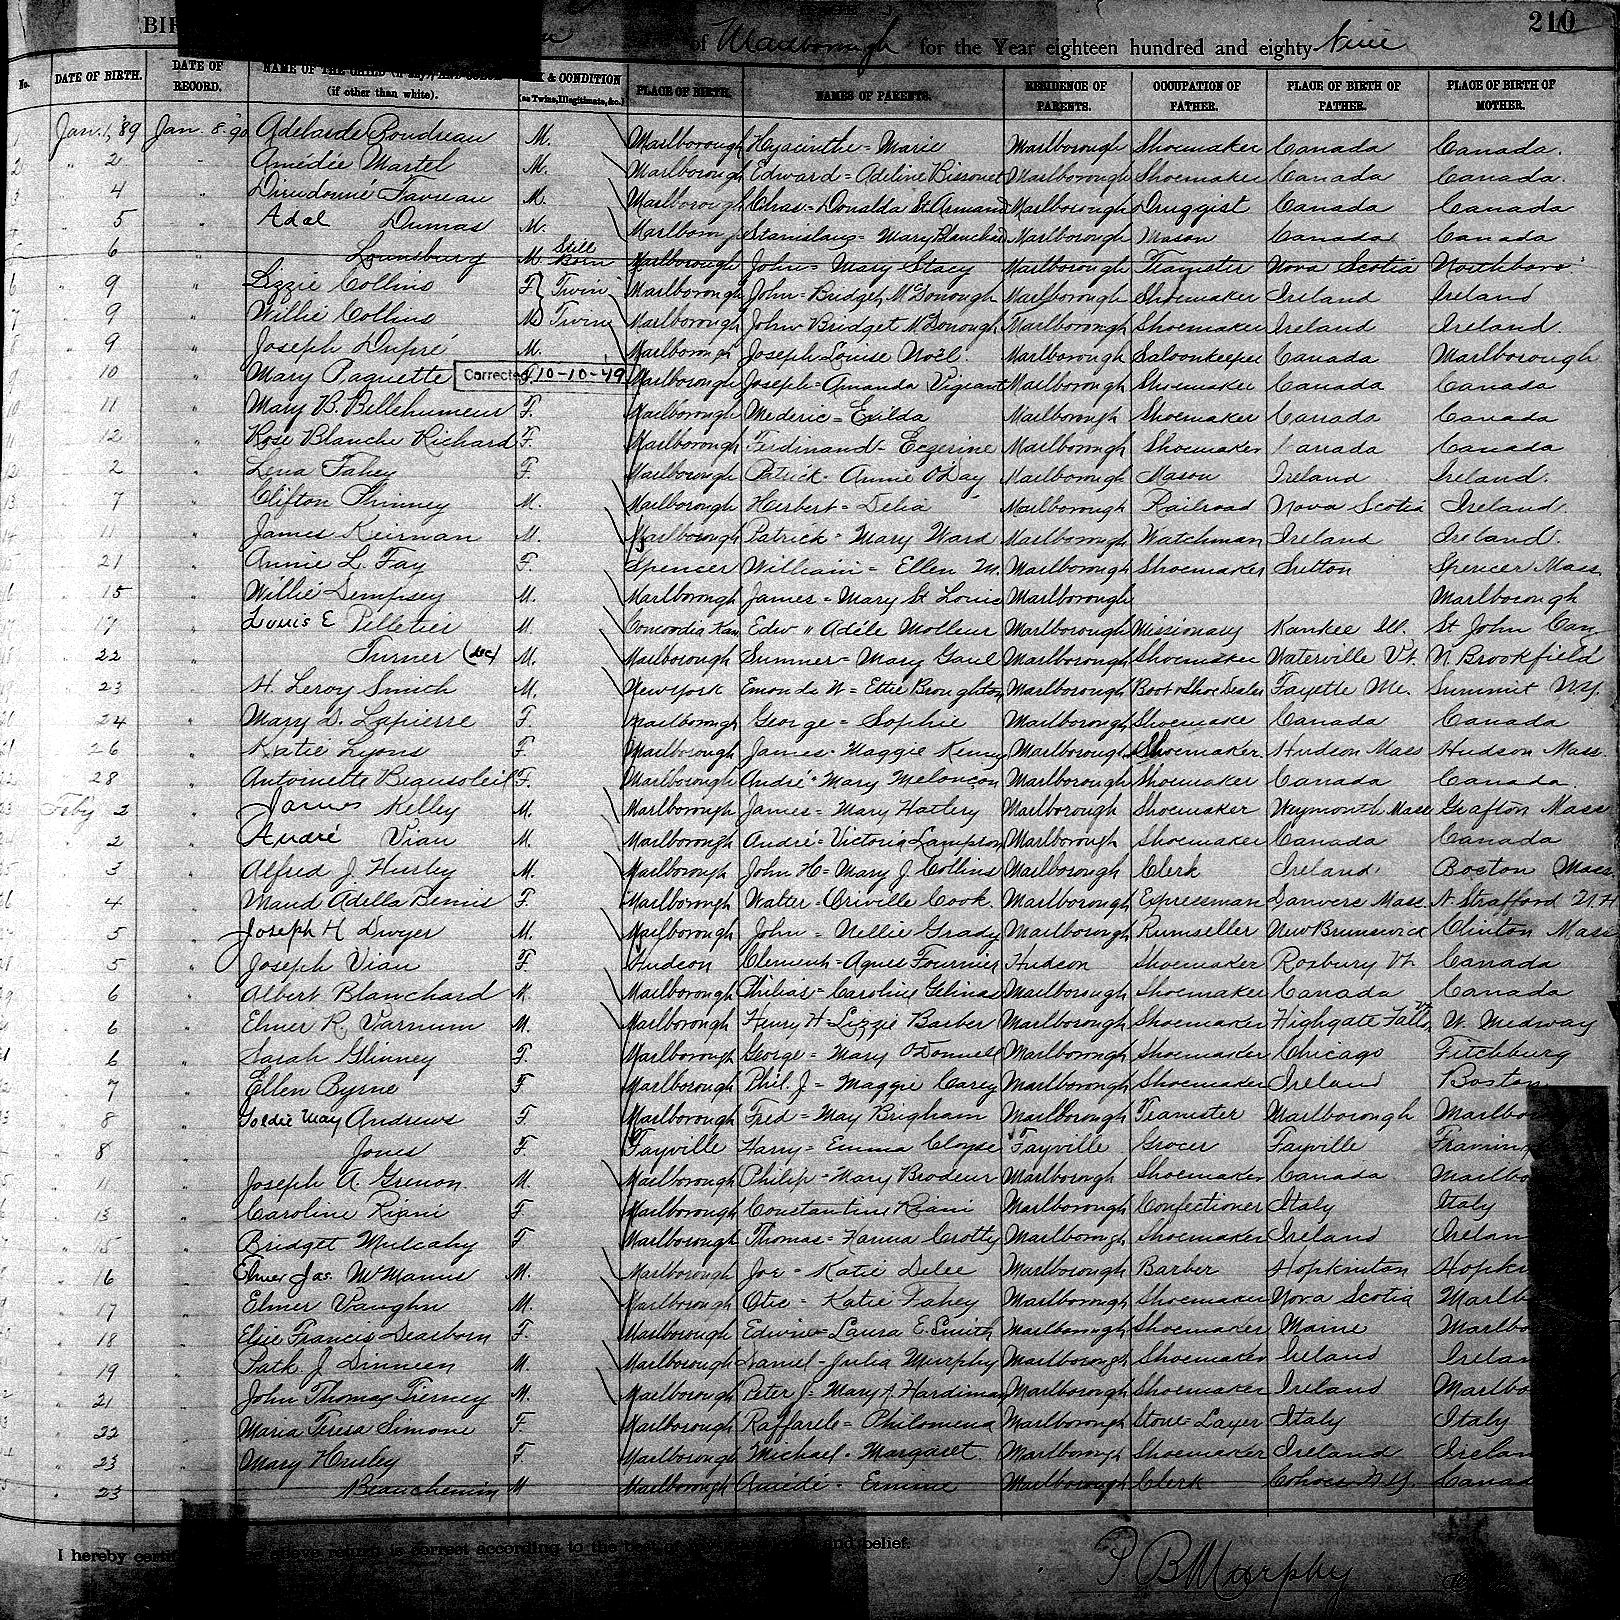 210
of Marlborough for the Year eighteen hundred and eighty Nine
No. DATE OF BIRTH. DATE OF RECORD. NAME OF THE CHILD (if any) AND COLOR (if other than white). & CONDITION (as Twins, Illegitimate, &c.) PLACE OF BIRTH. NAMES OF PARENTS. RESIDENCE OF PARENTS. OCCUPATION OF FATHER. PLACE OF BIRTH OF FATHER. PLACE OF BIRTH OF MOTHER.
1 Jan. 1, '89 Jan. 8. 90 Adelarde Boudreau M. Marlborough Hyacinthe = Marie Marlborough Shoemaker Canada Canada.
2 " 2 " Amédée Martel M. Marlborough Edward = Adeline Bissonet Marlborough Shoemaker Canada Canada.
3 " 4 " Dieudonné Favreau M. Marlborough Chas = Donalda St Armand Marlborough Druggist Canada Canada
5 " Adel Dumas M. Marlborough Stanislaus = Mary Blanchard Marlborough Mason Canada Canada
5 " 6 Lounsbury M Still Born Marlborough John = Mary Stacy Marlborough Teamster Nova Scotia Northboro'
6 " 9 " Lizzie Collins F } Twin Marlborough John = Bridget McDonough Marlborough Shoemaker Ireland Ireland
7 " 9 " Willie Collins M Twin Marlborough John = Bridget McDonough Marlborough Shoemaker Ireland Ireland.
8 " 9 " Joseph Dupré M. Marlborough Joseph Louise Noël. Marlborough Saloonkeeper Canada Marlborough
9 " 10 " Mary Paquette Corrected 10-10-49 Marlborough Joseph = Amanda Vigeant Marlborough Shoemaker Canada Canada
10 " 11 " Mary B. Bellehumeur F. Marlborough Mederic = Exilda Marlborough Shoemaker Canada Canada
11 " 12 " Rose Blanche Richard F. Marlborough Ferdinand = Marlborough Shoemaker Canada Canada
12 " 2 " Lena Fahey F. Marlborough Patrick = Annie O'Day Marlborough Mason Ireland Ireland.
13 " 7 " Clifton Phinney M. Marlborough Herbert = Delia Marlborough Railroad Nova Scotia Ireland.
14 " 11 " James Keirnan M. Marlborough Patrick = Mary Ward Marlborough Watchman Ireland Ireland.
15 " 21 " Annie L. Fay F. Spencer William = Ellen M. Marlborough Shoemaker Sutton Spencer Mass.
" 15 " Willie Dempsey M. Marlborough James = Mary St Louis Marlborough Marlborough
17 " 17 " Louis E Pelletier M. Concordia Kan Edw " Adéle Molleur Marlborough Missionary Kankee Ill. St John Can
" 22 " Turner (dec) M. Marlborough Sumner = Mary Gaul Marlborough Shoemaker Waterville Vt. N Brookfield
" 23 " H. Leroy Smith M. New York Emonde W = Ettie Broughton Marlborough Boot & Shoe Dealer Fayette Me. Summit N.Y.
" 24 " Mary D. Lapierre F. Marlborough George = Sophie Marlborough Shoemaker Canada Canada
21 " 26 " Katie Lyons F. Marlborough James = Maggie Kenny Marlborough Shoemaker Hudson Mass Hudson Mass.
22 " 28 " Antoinette Beausoleil F. Marlborough André = Mary Melancon Marlborough Shoemaker Canada Canada
23 Feby 2 " James Kelley M. Marlborough James = Mary Hatlery Marlborough Shoemaker Weymouth Mass Grafton Mass
" 2 " André Vian M. Marlborough André = Victoria Lampson Marlborough Shoemaker Canada Canada
" 3 " Alfred J. Hurley M. Marlborough John H = Mary J. Collins Marlborough Clerk Ireland Boston Mass.
" 4 " Maud Adella Bemis F. Marlborough Walter = Oriville Cook. Marlborough Expressman Danvers Mass. N. Strafford N.H
" 5 " Joseph H Dwyer M. Marlborough John = Nellie Grady Marlborough Rumseller New Brunswick Clinton Mass
" 5 " Joseph Vian F. Hudson Clement = Agnes Fournier Hudson Shoemaker Roxbury Vt. Canada
" 6 " Albert Blanchard M. Marlborough Philias = Caroline Gelinas Marlborough Shoemaker Canada Canada
" 6 " Elmer R. Varnum M. Marlborough Henry H = Lizzie Barber Marlborough Shoemaker Highgate Falls Vt. W. Medway
" 6 " Sarah Glinney F. Marlborough George = Mary O'Donnell Marlborough Shoemaker Chicago Fitchburg
" 7 " Ellen Byrne F Marlborough Phil. J = Maggie Carey Marlborough Shoemaker Ireland Boston
" 8 " Goldie May Andrews F. Marlborough Fred = May Brigham Marlborough Teamster Marlborough Marlbo
" 8 " Jones F. Fayville Harry = Emma Cloyse Fayville Grocer Fayville Framing
" 11 " Joseph A. Grenon. M. Marlborough Philip = Mary Brodeur Marlborough Shoemaker Canada Marlbo
" 13 " Caroline Riani F. Marlborough Constantine Riani Marlborough Confectioner Italy Italy
" 15 " Bridget Mulcahy F. Marlborough Thomas = Hanna Crotty Marlborough Shoemaker Ireland Irelan
" 16 " Elmer Jas. McManus M. Marlborough Joe = Katie Delee Marlborough Barber Hopkinton Hopki
" 17 " Elmer Vaughn M. Marlborough Otis = Katie Fahey Marlborough Shoemaker Nova Scotia Marlb
" 18 " Elsie Francis Dearborn F. Marlborough Edwin = Laura E. Smith Marlborough Shoemaker Maine Marlbo
" 19 " Patk J Dinneen M. Marlborough Daniel = Julia Murphy Marlborough Shoemaker Ireland Irelan
" 21 " John Thomas Tierney M. Marlborough Peter J = Mary A. Hardiman Marlborough Shoemaker Ireland Marlbo
" 22 " Maria Teresa Simone F. Marlborough Raffaele = Philomena Marlborough Stone = Layer Italy Italy
" 23 " Mary Hursley F. Marlborough Michael = Margaret. Marlborough Shoemaker Ireland Irelan
" 23 " Beauchemin M Marlborough Amédé = Emma Marlborough Clerk Cohoes N.Y. Canad
I hereby certi above return is correct according to the best of and belief.
P. B Murphy